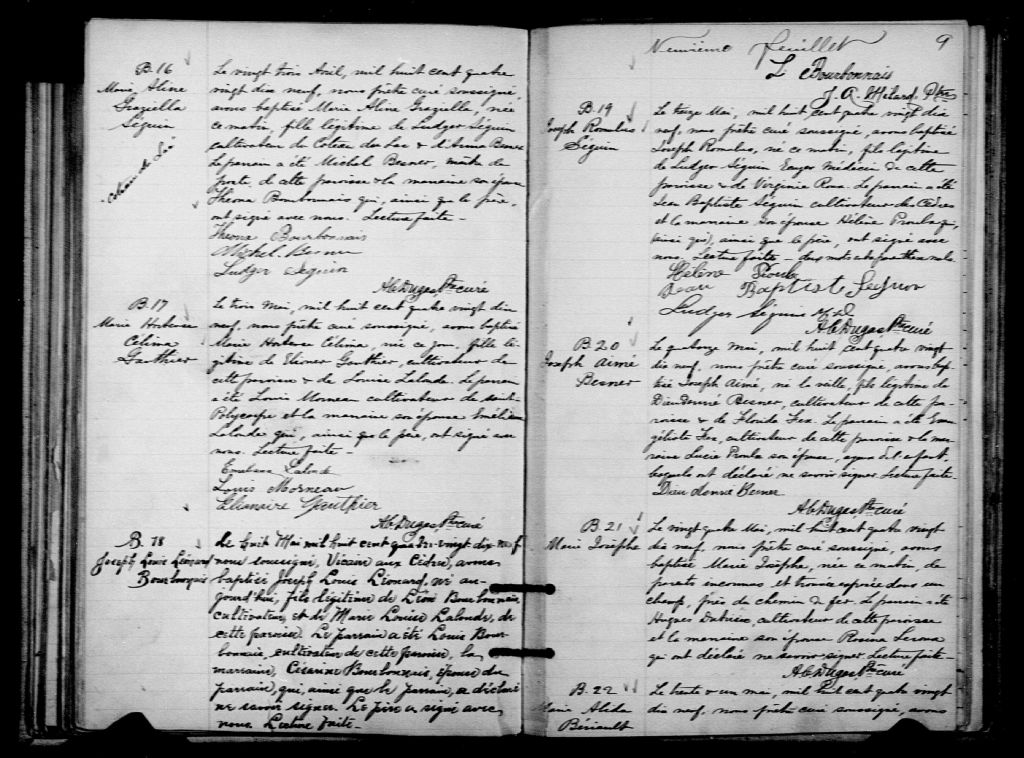 B.16
Marie Aline
Graziella
Séguin
Coteau du Lac
Le vingt trois Avril, mil huit cent quatre
vingt dix neuf, nous prêtre curé soussigné,
avons baptisé Marie Aline Graziella, née
ce matin, fille légitime de Ludger Séguin
cultivateur de Coteau du Lac & d'Anna Besner
Le parrain a été Michel Besner, maître de
poste, de cette paroisse & la marraine son épouse
Theona Bourbonnais qui, ainsi que le père,
ont signé avec nous. Lecture faite -
Theona Bourbonnais
Michel Besner
Ludger Seguin
Dugas Ptre curé
B.17
Marie Hortense
Célina
Gauthier
Le trois Mai, mil huit cent quatre vingt dix
neuf, nous prêtre curé soussigné, avons baptisé
Marie Hortense Célina, née ce jour, fille lé-
gitime de Gauthier, cultivateur de
cette paroisse & de Louise Lalonde. Le parrain
a été Louis Morneau cultivateur de Saint-
Polycarpe et la marraine son épouse
Lalonde qui, ainsi que le père, ont signé avec
nous. Lecture faite -
Lalonde
Louis Morneau
Gauthier
Dugas Ptre curé
B. 18
Joseph Louis Léonard
Bourbonnais
Le huit Mai mil huit cent quatre-vingt dix neuf
nous soussigné, Vicaire aux Cèdres, avons
baptisé Joseph Louis Léonard, né au-
jourd'hui, fils légitime de Léon Bourbonnais,
cultivateur, et de Marie Louise Lalonde, de
cette paroisse. Le parrain a été Louis Bour-
bonnais, cultivateur de cette paroisse, la
marraine, Césarine Bourbonnais, épouse du
parrain, qui, ainsi que le parrain, a déclaré
ne savoir signer. Le père a signé avec
nous Lecture faite -
Neuvième feuillet 9
L Bourbonnais
J. A. Ptre
B.19
Joseph Romulus
Séguin
Le treize Mai, mil huit cent quatre vingt dix
neuf, nous prêtre curé soussigné, avons baptisé
Joseph Romulus, né ce matin, fils légitime
de Ludger Séguin Médecin de cette
paroisse & de Virginie Roux. Le parrain a été
Jean Baptiste Séguin cultivateur des Cèdres
et la marraine son épouse Hélène Proulx,
(ainsi qui), ainsi que le père, ont signé avec
nous. Lecture faite - deux mots
Hélène Proulx
Jean Baptist Seguin
Ludger Séguin M.D.
Dugas Ptre curé
B.20
Joseph Aimé
Besner
Le quatorze Mai, mil huit cent quatre vingt
dix neuf, nous prêtre curé soussigné, avons bap-
tisé Joseph Aimé, né la veille, fils légitime de
Dieudonné Besner, cultivateur de cette pa-
roisse & de Le parrain a été Évan-
géliste cultivateur de cette paroisse & la mar-
raine Lucie Proulx son épouse, de l'enfant,
lesquels ont déclaré ne savoir signer Lecture faite -
Dieudonné Besner
Dugas Ptre curé
B.21
Marie Josèphe
Le vingt quatre Mai, mil huit cent quatre vingt
dix neuf, nous prêtre curé soussigné, avons
baptisé Marie Josèphe, née ce matin, de
parents inconnus et trouvée exposée dans un
champ, près du chemin de fer. Le parrain a été
Hugues cultivateur de cette paroisse
et la marraine son épouse Rosina Leroux
qui ont déclaré ne savoir signer Lecture faite -
Dugas Ptre curé
B.22
Marie
Bériault
Le trente & un mai, mil huit cent quatre vingt
dix neuf, nous prêtre curé soussigné, avons